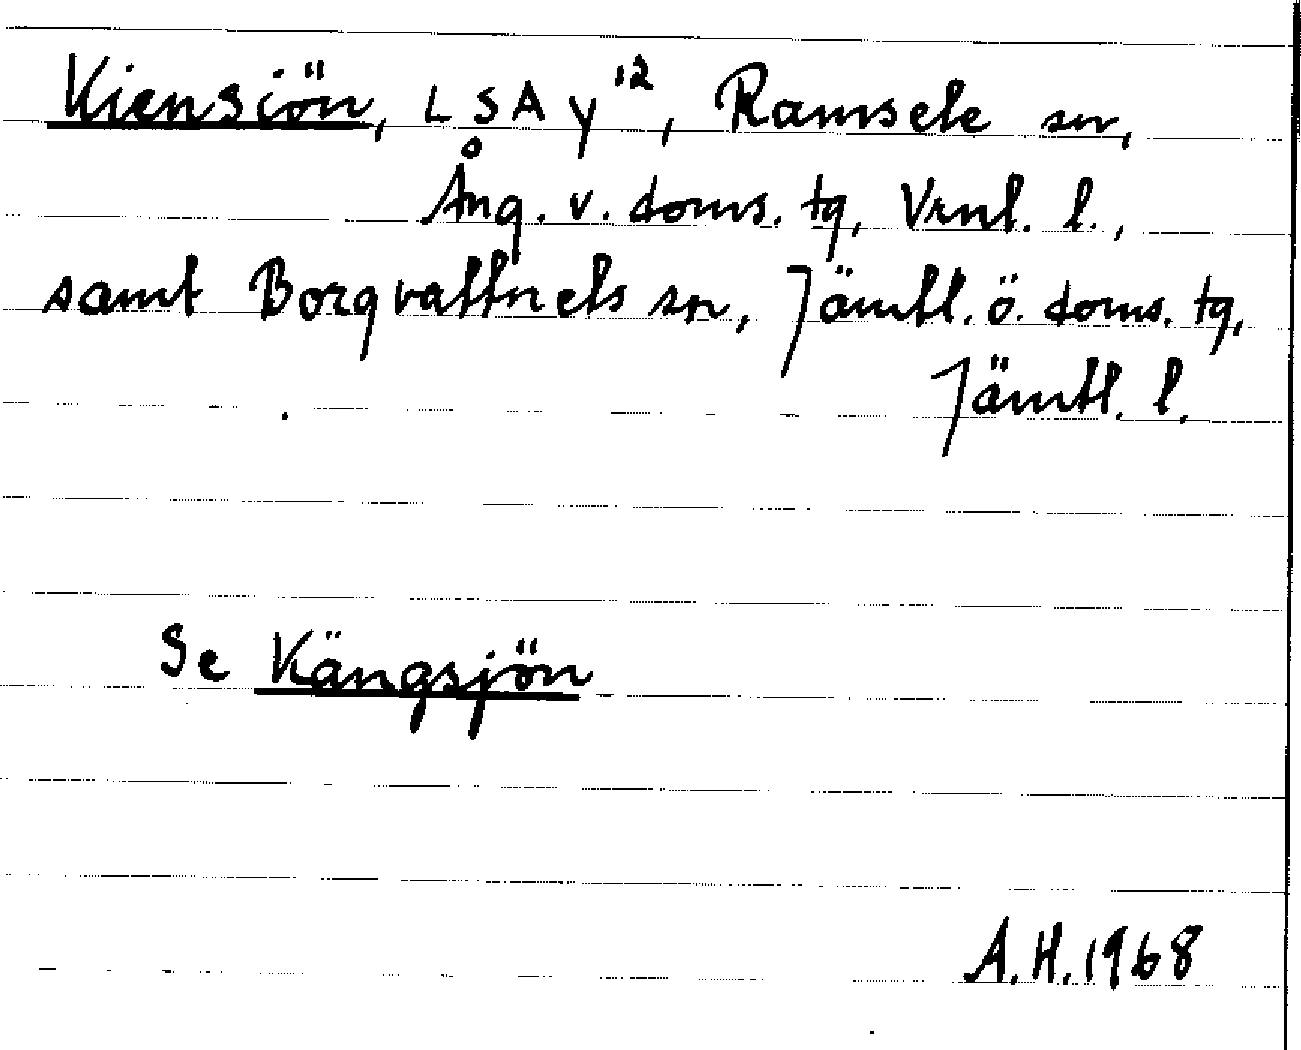 Kiensiön, L S A Y¹², Ramsele sn,
Ång. v. doms. tg, Vrnl. l.,
samt Borgvattnets sn, Jämtl. ö. doms. tg,
Jämtl. l.
Se Kängsjön
A.H. 1968